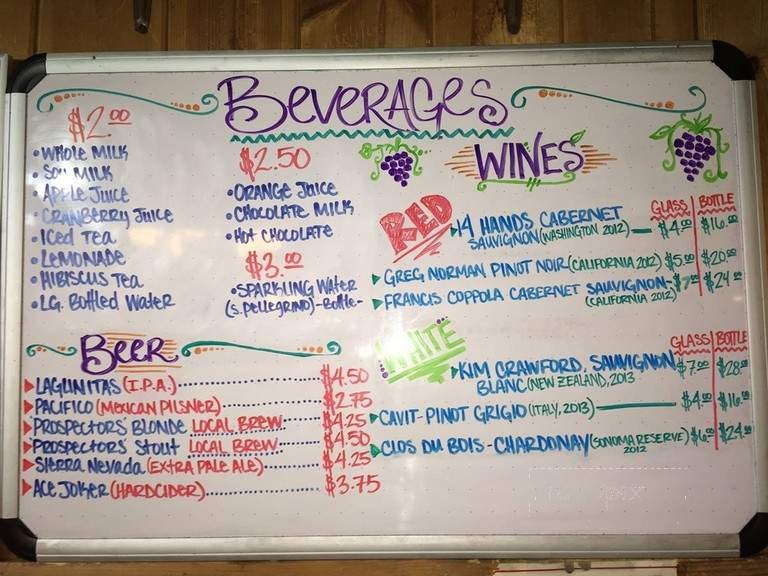 BEVERAGES
$2.00
• WHOLE MILK
• SOY MILK
• APPLE JUICE
• CRANBERRY JUICE
• ICED TEA
• LEMONADE
• HIBISCUS TEA
• LG. BOTTLED WATER
$2.50
• ORANGE JUICE
• CHOCOLATE MILK
• HOT CHOCOLATE
$3.00
• SPARKLING WATER
(S. PELLEGRINO) -BOTTLE-
BEER
LAGUNITAS (I.P.A.) $4.50
PACIFICO (MEXICAN PILSNER) $2.75
PROSPECTORS' BLONDE LOCAL BREW $4.25
PROSPECTORS' STOUT LOCAL BREW $4.50
SIERRA NEVADA (EXTRA PALE ALE) $4.25
ACE JOKER (HARDCIDER) $3.75
WINES
RED
GLASS BOTTLE
14 HANDS CABERNET
SAUVIGNON (WASHINGTON 2012) — $4.00 $16.00
GREG NORMAN PINOT NOIR (CALIFORNIA 2012) $5.00 $20.00
FRANCIS COPPOLA CABERNET SAUVIGNON- $7.00 $24.00
(CALIFORNIA 2012)
WHITE
GLASS BOTTLE
KIM CRAWFORD, SAUVIGNON $7.00 $28.00
BLANC (NEW ZEALAND, 2013
CAVIT- PINOT GRIGIO (ITALY, 2013) — $4.00 $16.00
CLOS DU BOIS - CHARDONAY (SONOMA RESERVE) $6.00 $24.00
2012